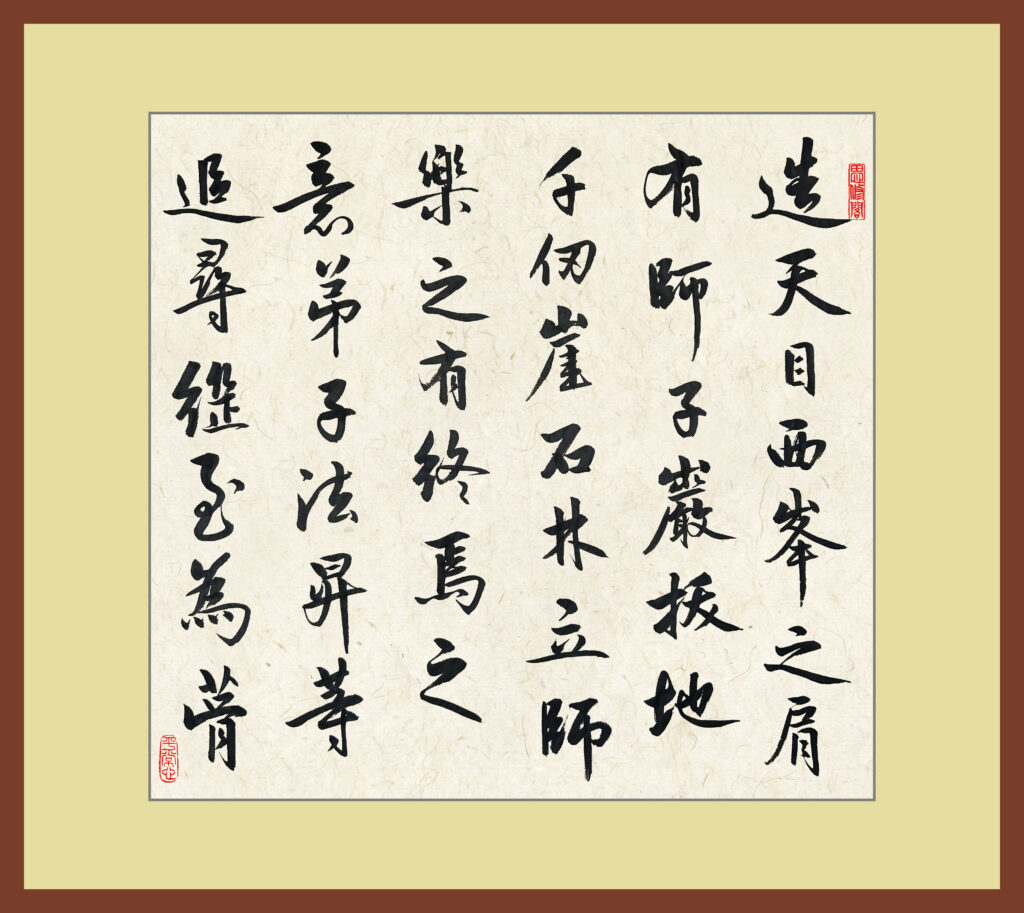 造天目西峯之肩
有師子巖拔地
千仞崖石林立師
樂之有終焉之
意弟子法昇等
追尋繼至為葺
思修閣
平常心